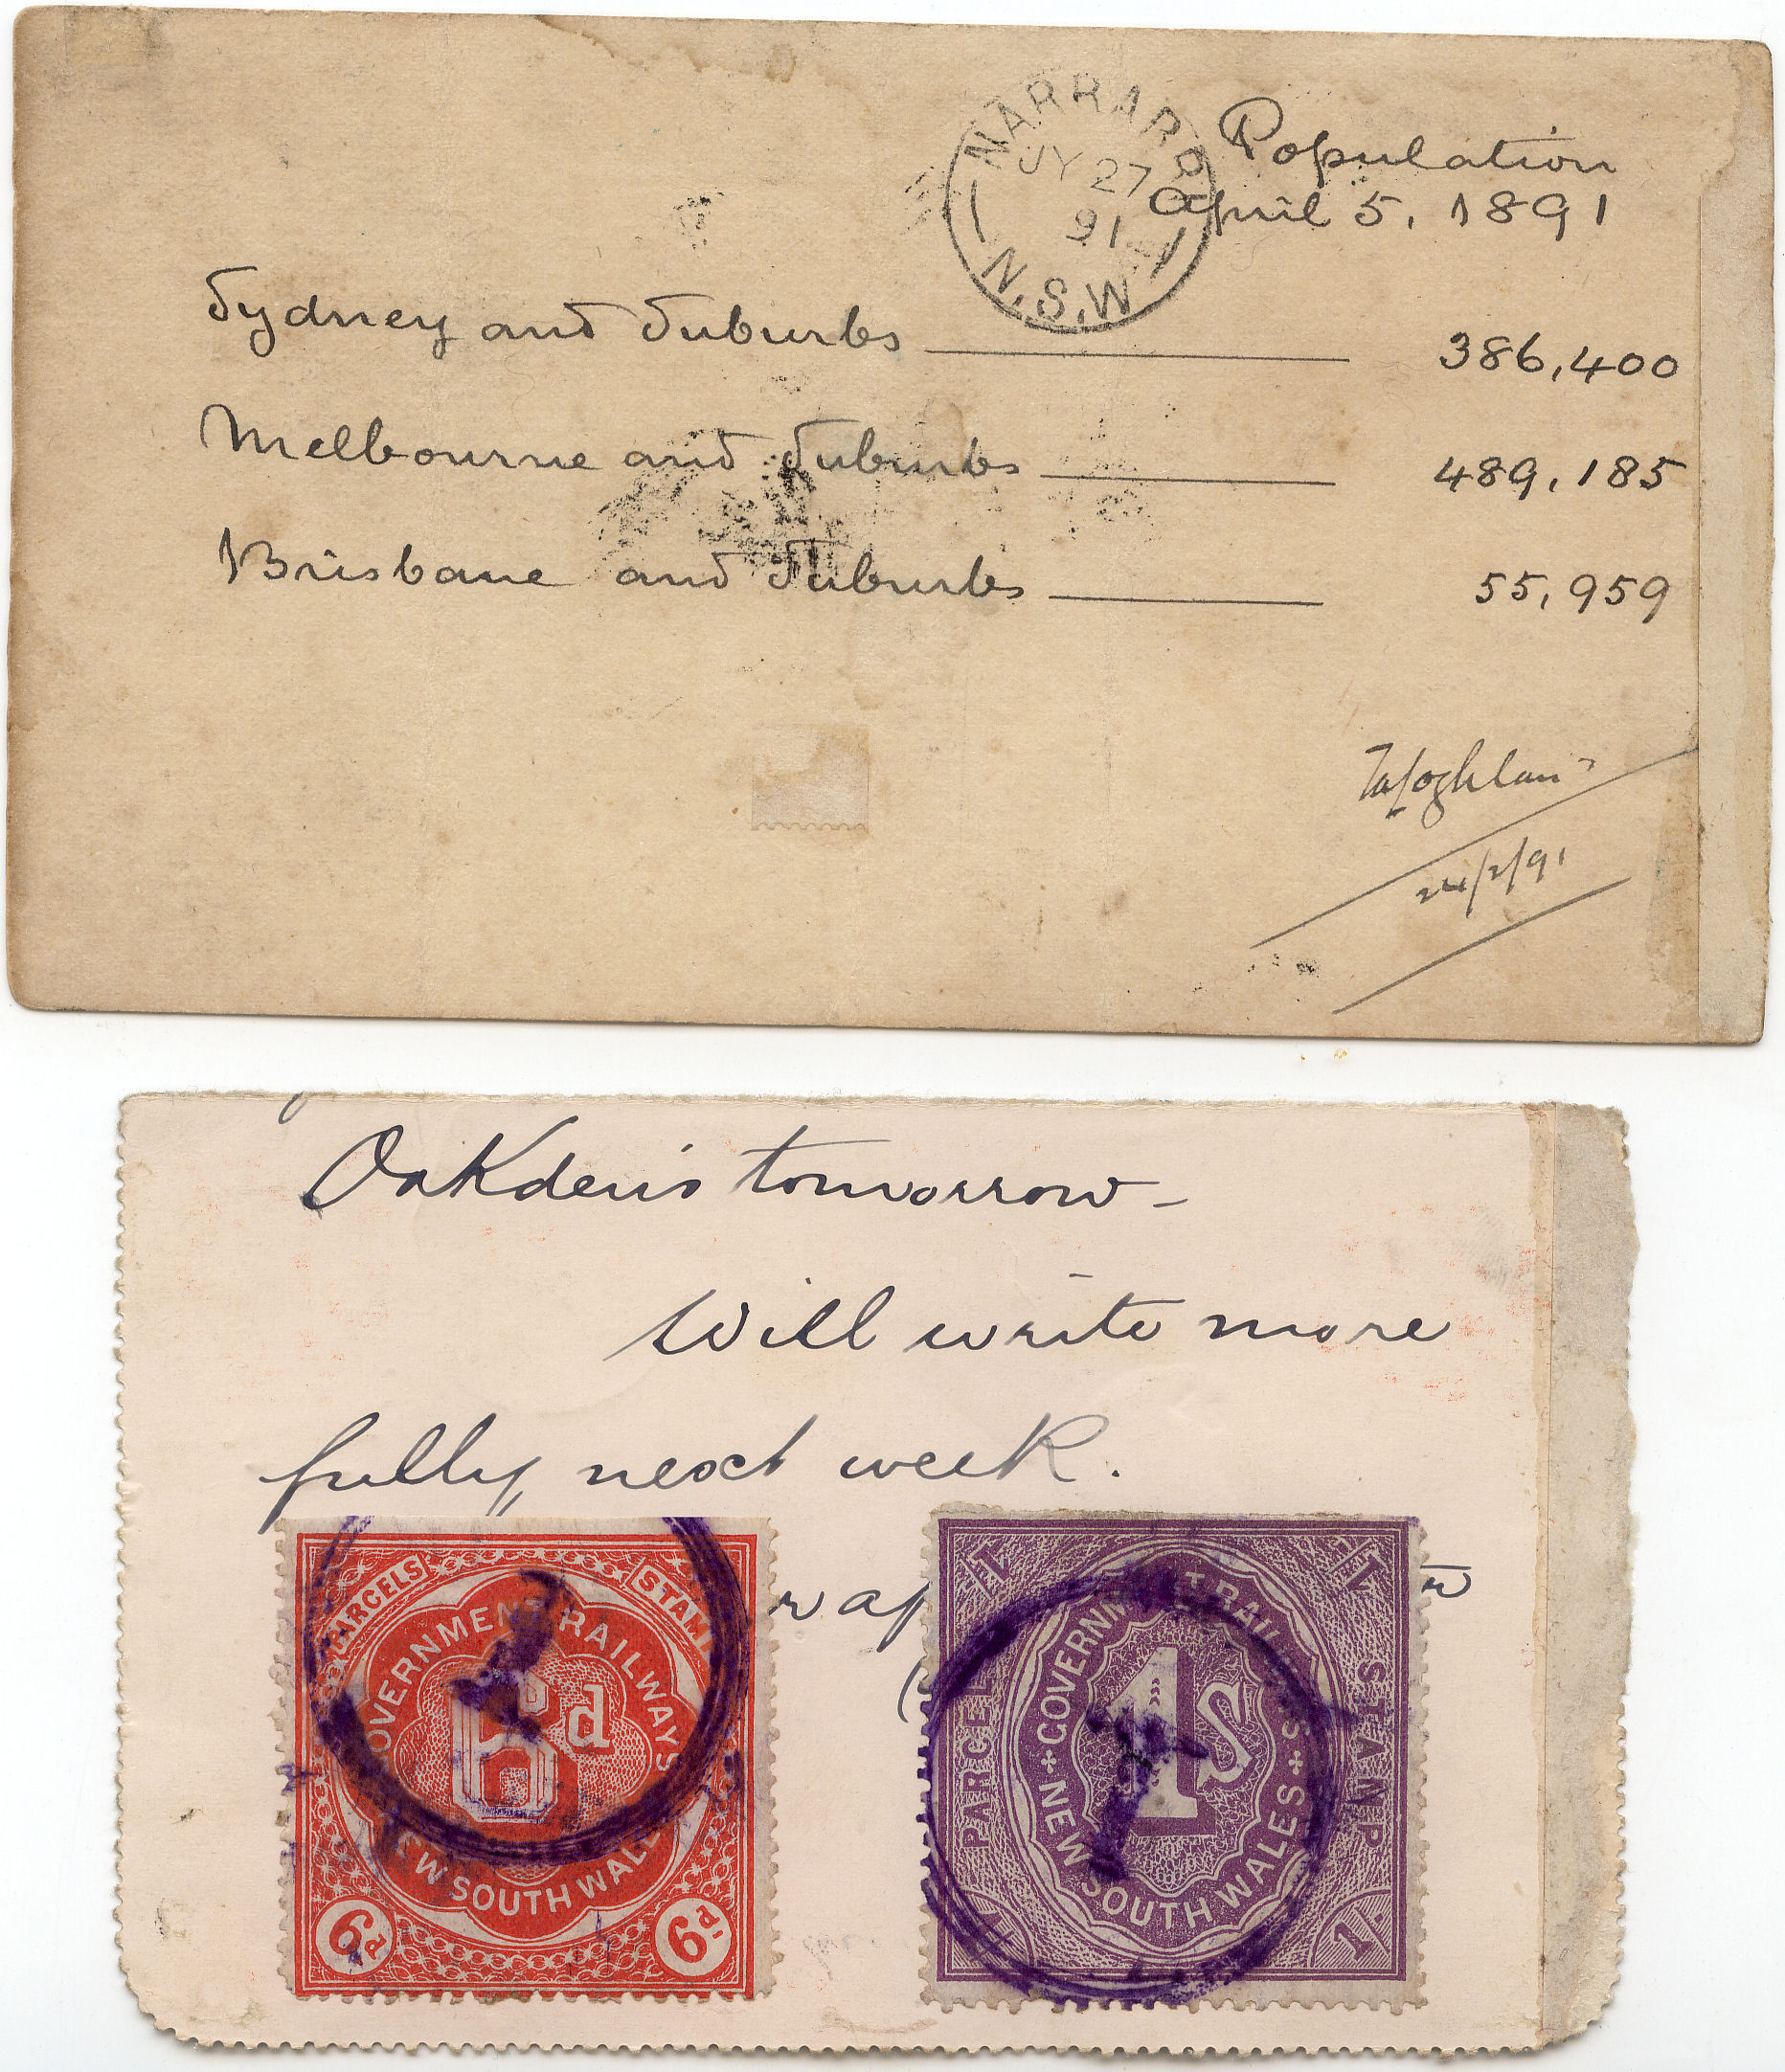 NARRABR
JY 27
91
N.S.W
Population
April 5, 1891
Sydney and Suburbs 386,400
Melbourne and Suburbs 489,185
Brisbane and Suburbs 55,959
24/7/91
Oakden's tomorrow -
Will write more
fully next week.
PARCELS STAM
GOVERNMENT RAILWAYS
6d
NEW SOUTH WALE
6d 6d
1/- 1/-
PARCEL STAMP
GOVERNM T RAIL S
1s
NEW SOUTH WALES
1/-